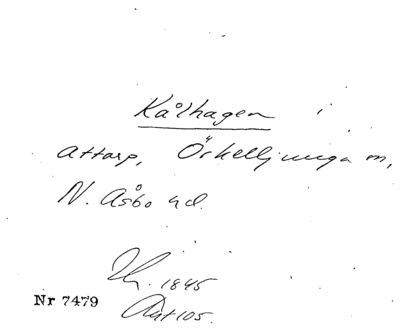 Kålhagen i
Attarp, Örkelljunga m,
N. Åsbo hd.
1845
Nr 7479
Akt 105.